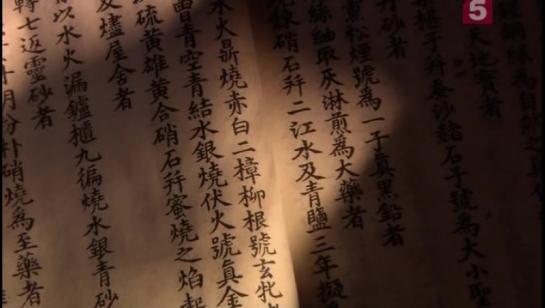 5
為自然之
地寶者
石子號為大小聖
砂者
黑松煙號為一子真黑鉛者
絲紬取灰淋煎為大藥者
硝石并二江水及青鹽三年擬
水火鼎燒赤白二樟柳根號玄牝
曾青空青結水銀燒伏火號真金
硫黃雄黃合硝石并蜜燒之焰起
及燼屋舍者
以水火漏鑪櫃九徧燒水銀青砂
轉七返靈砂者
硝燒為至藥者